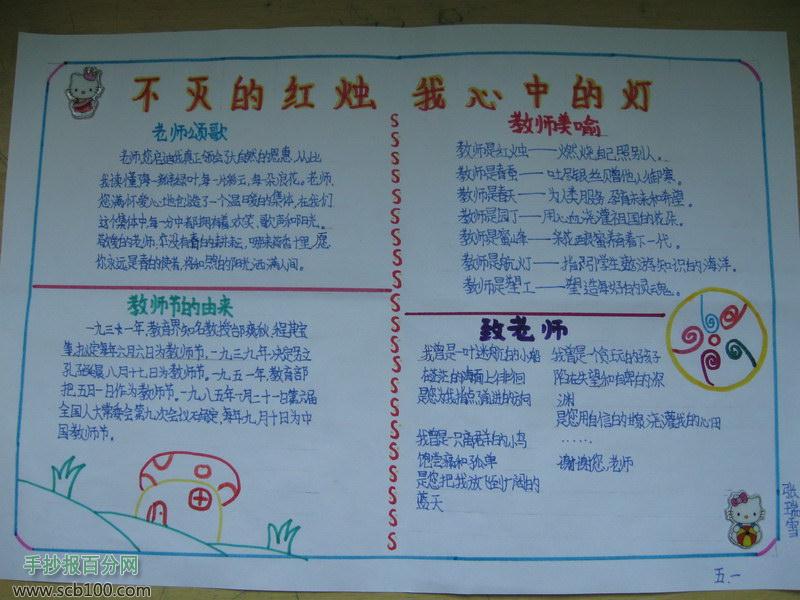 不灭的红烛 我心中的灯
老师颂歌
老师，您启迪我真正领会了大自然的恩惠，从此
我读懂每一片绿叶，每一片彩云，每一朵浪花。老师，
您满怀爱心地创造了一个温暖的集体，在我们
这个集体中，每一分中都拥有着欢笑、歌声和阳光。
敬爱的老师，您没有春的
愿
你永远是春的使者，将和煦的阳光洒满人间。
教师节的由来
一九三一年，教育界知名教授邰爽秋、程其宝
等，拟定每年六月六日为教师节。一九三九年，决定另立
孔诞辰八月二十七日为教师节。一九五一年，教育部
把五日一作为教师节。一九八五年一月二十一日第六届
全国人大常委会第九次会议确定，每年九月十日为中
国教师节。
教师美喻
教师是红烛——燃烧自己，照别人。
教师是春蚕——吐尽银丝赠他人御寒。
教师是春天——为人类服务，孕育未来和希望。
教师是园丁——用心血浇灌祖国的花朵。
教师是蜜蜂——采花酿蜜养育着下一代。
教师是航灯——指引学生遨游知识的海洋。
教师是塑工——塑造每好的灵魂。
致老师
我曾是一叶迷航的小船
在茫茫的海面上徘徊
是您为我指点前进的方向
我曾是一只离群的小鸟
饱尝痛和孤单
是您把我放飞到广阔的
蓝天
我曾是一个贪玩的孩子
陷在失望和自卑的深
渊
是您用自信的甘泉浇灌我的心田
……
谢谢您，老师
张瑞雪
五.一
手抄报百分网
www.scb100.com